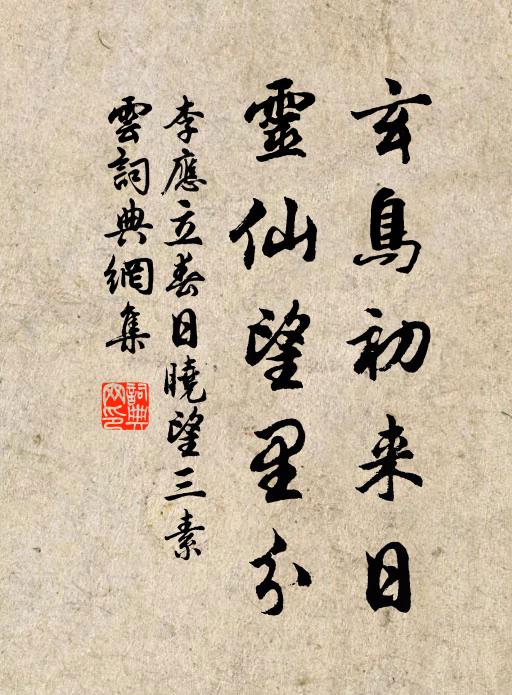 玄鳥初来日
靈仙望里分
李應立春日曉望三素
雲詞典網集
詞典
网印